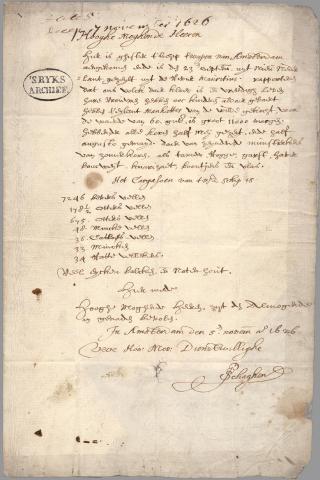 7 November 1626
Hooghe Moghende Heeren
'SRYKS
ARCHIEF
Hier is ghister t'schip t'wapen van Amsterdam
aengekomen ende is den 23 septem. uyt Nieu Neder
Lant gezeylt uyt de rivier Mauritius. rapporteren
dat ons volck daer kloec is en vreedigh leven
hare vrouwen hebben oock kinderen aldaer gebaert
hebben t'eylant Manhattes van de wilde gekocht voor
de waerde van 60 gul. is groot 11000 morgen.
hebbende alle koren half mey gezeyt ende half
augusto gemayt. daer van zeynden munsterkens
van zomerkoren, als tarwe, rogge, garst, haver
boucweyt, knarizaet, boontjens en vlas.
Het Cargasoen van schip is
7246 Bevers vellen
178½ Otters vellen
675 Otters vellen
48 Mincke vellen
36 Catloes vellen
33 Mincken
34 Ratte vellekens
Veel eycken balcken, en Noten hout.
Hier mede
Hooghe Moghende Heeren, zyt den Almogende
in genade bevolen
In Amsterdam den 5 novem ao 1626
Uwe Hoo: Moo: Dienstwillighe
P Schaghen